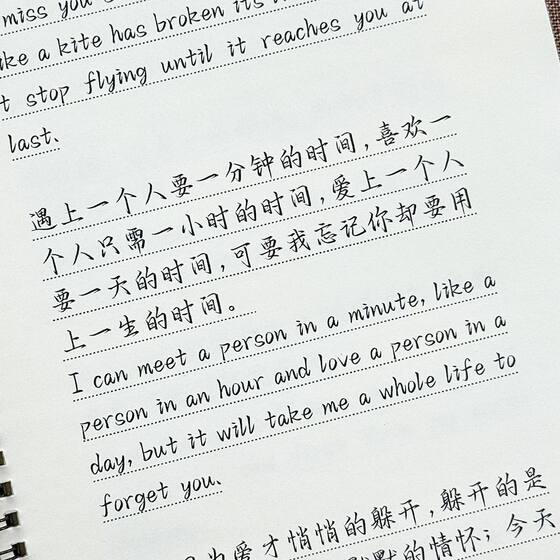 miss you
like a kite has broken its
t stop flying until it reaches you at
last.
遇上一个人要一分钟的时间,喜欢一
个人只需一小时的时间,爱上一个人
要一天的时间,可要我忘记你却要用
上一生的时间。
I can meet a person in a minute, like a
person in an hour and love a person in a
day, but it will take me a whole life to
forget you.
为爱才悄悄的躲开,躲开的是
默的情怀;今天